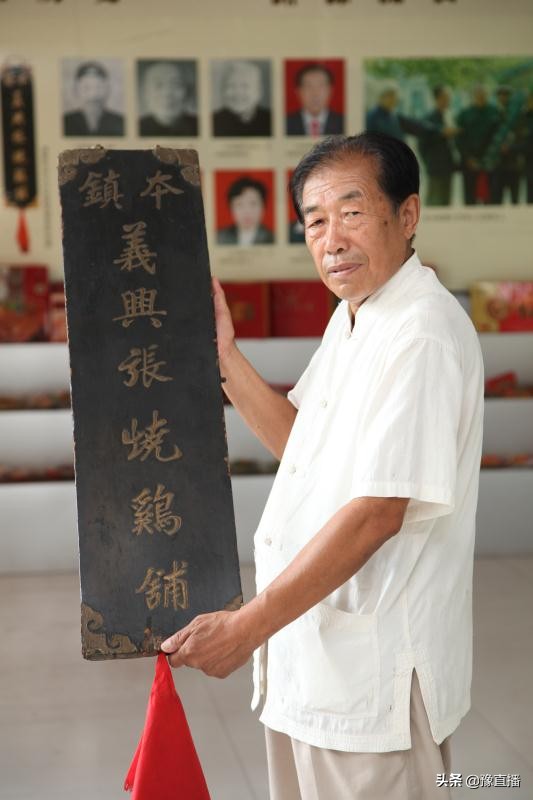 本鎮
義興張燒鷄舖
头条 @豫直播